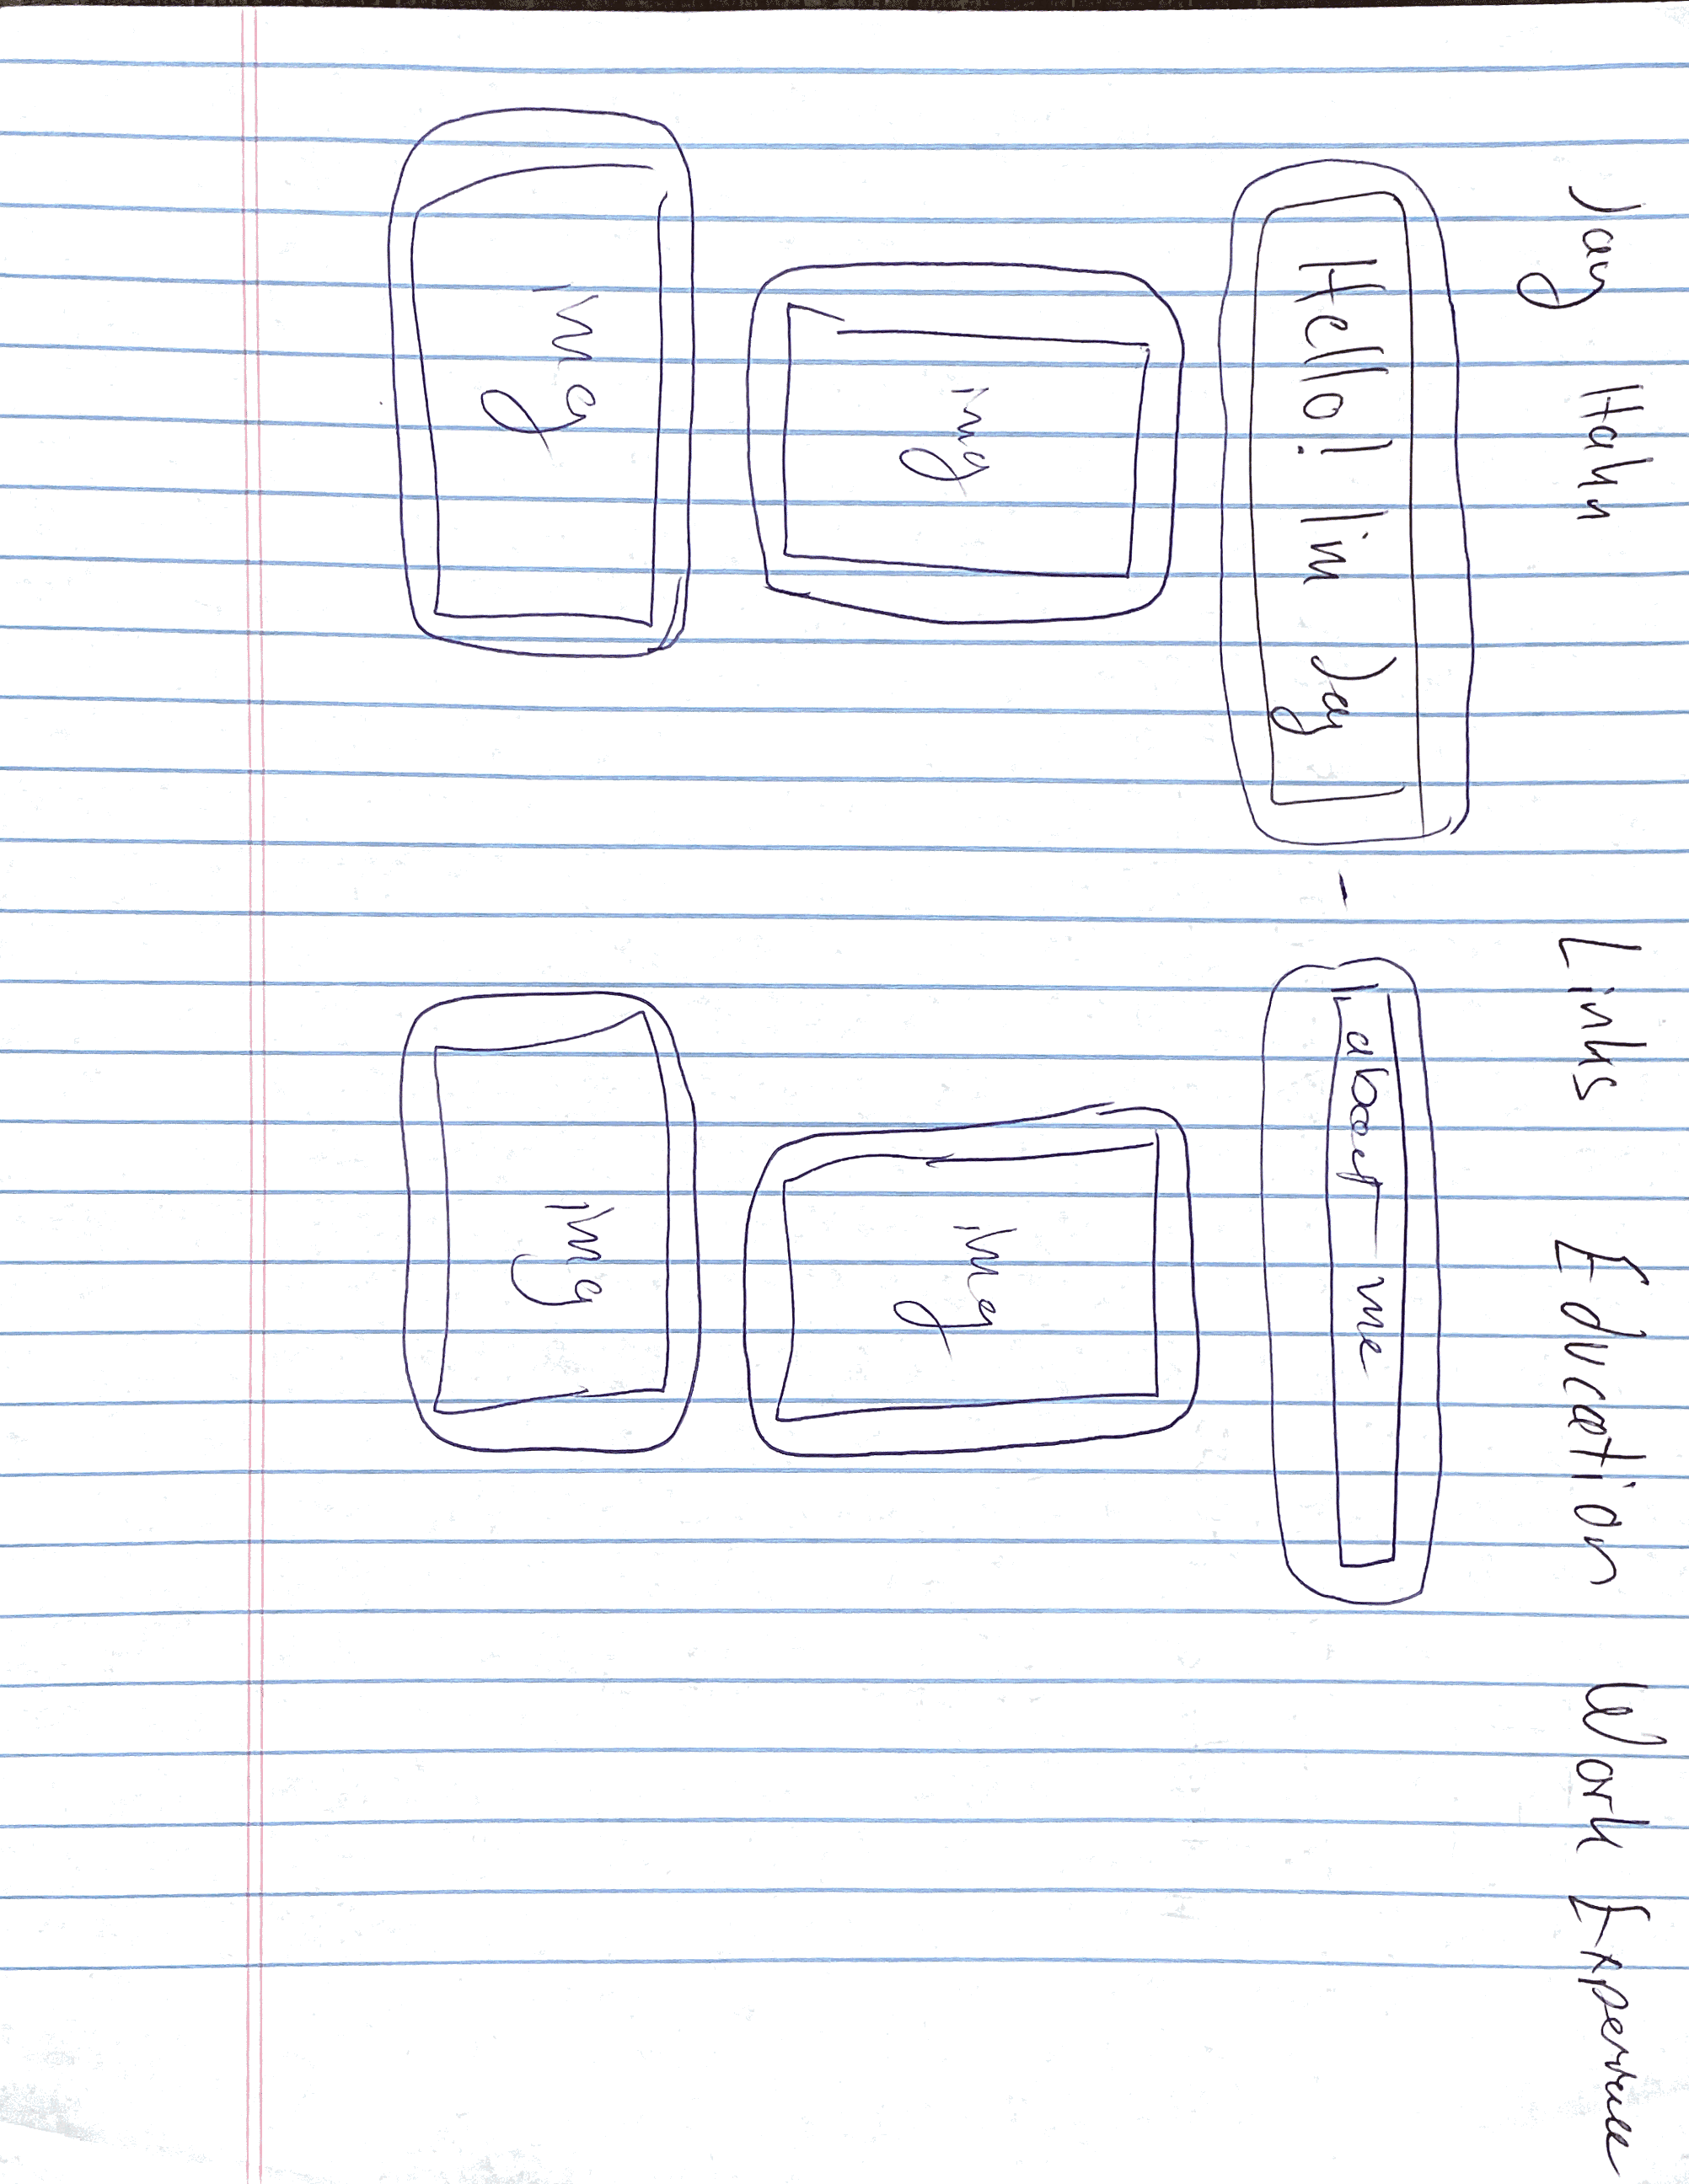 Jay Hahn Links Education Work Experience
Hello! I'm Jay - about me
img img
img img